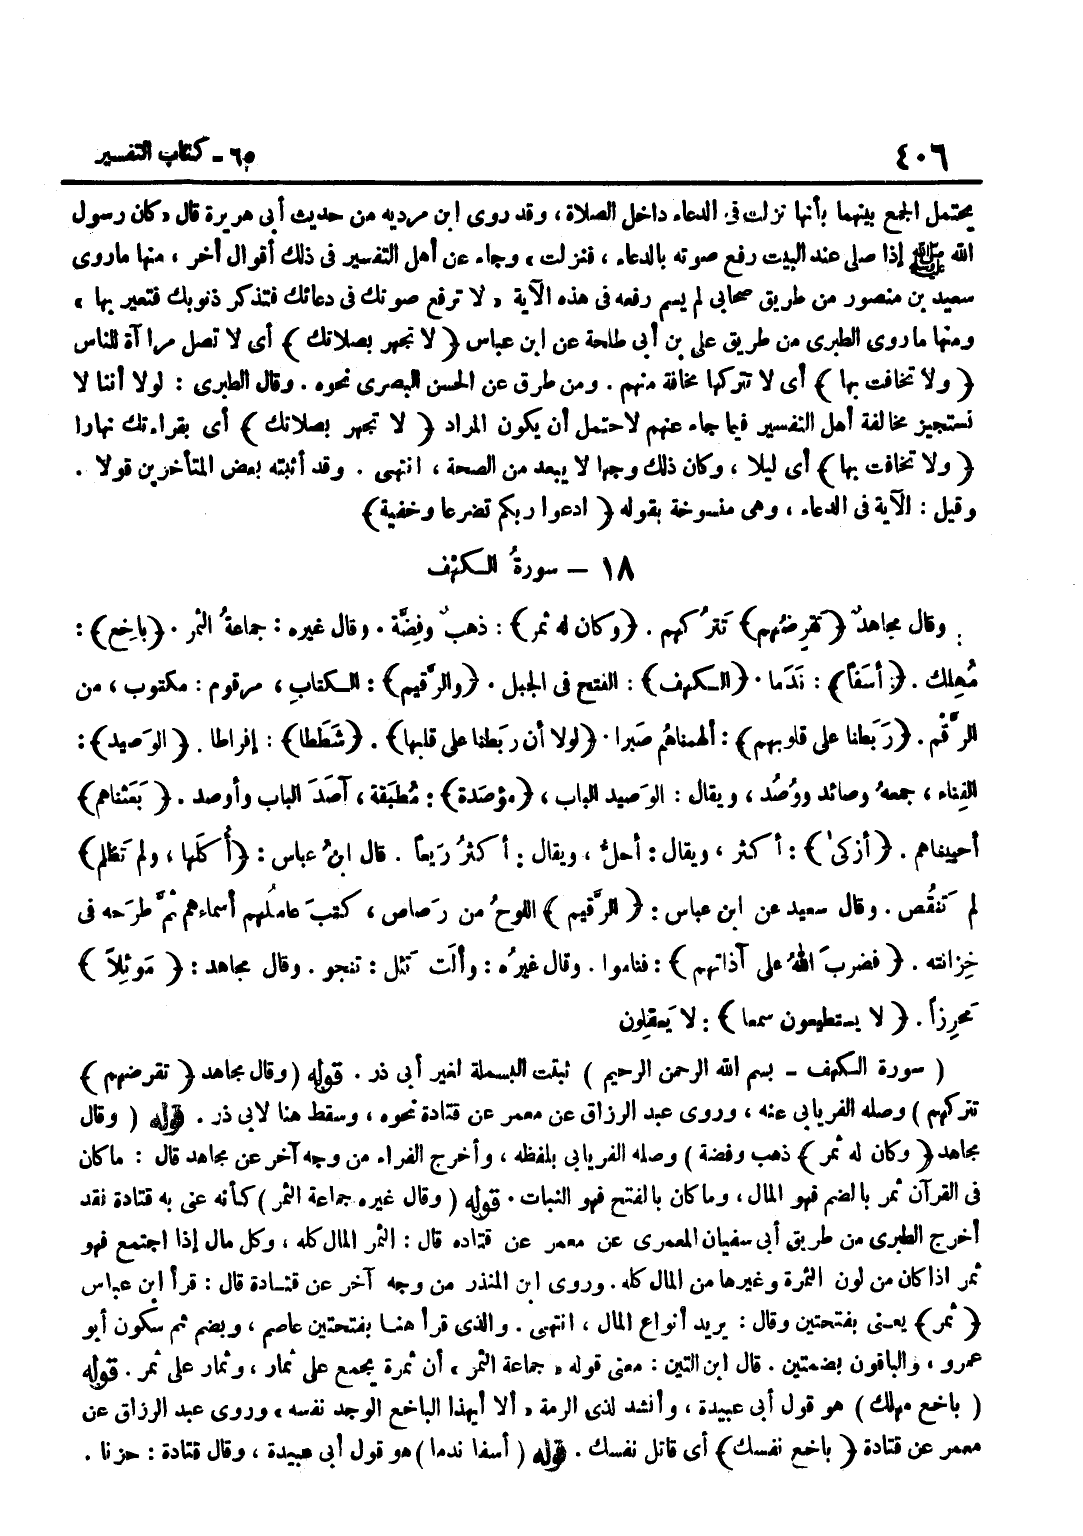 ٤٠٦
٦٥ - كتاب التفسير
يحتمل الجمع بينهما بأنها نزلت فى الدعاء داخل الصلاة ، وقد روى ابن مردیه من حديث أبى هريرة قال « كان رسول
الله ﷺ إذا صلى عند البيت رفع صوته بالدعاء ، فنزلت » وجاء عن أهل التفسير فى ذلك أقوال أخر ، منها ما روى
سعيد بن منصور من طريق صحابى لم يسم رفعه فى هذه الآية « لا ترفع صوتك فى دعائك فتذكر ذنوبك فتعير بها »
ومنها ما روى الطبرى من طريق على بن أبى طلحة عن ابن عباس ﴿ لا تجهر بصلاتك ﴾ أى لا تصل مراآة للناس
﴿ ولا تخافت بها ﴾ أى لا تتركها مخافة منهم . ومن طرق عن الحسن البصرى نحوه . وقال الطبرى : لولا أننا لا
نستجيز مخالفة أهل التفسير فيما جاء عنهم لاحتمل أن يكون المراد ﴿ لا تجهر بصلاتك ﴾ أى بقراءتك نهارا
﴿ ولا تخافت بها ﴾ أى ليلا ، وكان ذلك وجها لا يبعد من الصحة ، انتهى . وقد أثبته بعض المتأخرين قولا .
وقيل : الآية فى الدعاء ، وهى منسوخة بقوله ﴿ ادعوا ربكم تضرعا وخفية ﴾
١٨ – سورةُ الكهْف
وقال مجاهدٌ ﴿ تَقرِضُهم ﴾ تَتركُهم . ﴿ وكان له ثمر ﴾ : ذهبٌ وفِضَّة . وقال غيره : جماعةُ الثمر . ﴿ باخِع ﴾ :
مُهلِك . ﴿ أسَفاً ﴾ : نَدَما . ﴿ الكهف ﴾ : الفتح فى الجبل . ﴿ والرَّقيم ﴾ : الكتاب ، مرقوم : مكتوب ، من
الرَّقْم . ﴿ رَبَطنا على قلوبهم ﴾ : ألهمناهُم صَبرا . ﴿ لولا أن ربَطنا على قلبها ﴾ . ﴿ شَطَطا ﴾ : إفراطا . ﴿ الوَصيد ﴾ :
الفِناء ، جمعهُ وصائد ووُصُد ، ويقال : الوَصيد الباب ، ﴿ مؤصَدة ﴾ : مُطبَقة ، آصَدَ الباب وأوصد . ﴿ بَعَثناهم ﴾
أحييناهم . ﴿ أزكىٰ ﴾ : أكثر ، ويقال : أحلُّ ، ويقال : أكثرُ رَيعاً . قال ابنُ عباس : ﴿ أُكلَها ، ولم تَظلم ﴾
لم تَنقُص . وقال سعيد عن ابن عباس : ﴿ الرَّقيم ﴾ اللوحُ من رَصاص ، كتبَ عاملُهم أسماءهم ثمَّ طرَحه فى
خِزانته . ﴿ فضربَ اللهُ على آذانهم ﴾ : فناموا . وقال غيرُه : وألَت تَئل : تنجو . وقال مجاهد : ﴿ مَوئِلاً ﴾
مَحرِزاً . ﴿ لا يستطيعون سمعا ﴾ : لا يَعقِلون
( سورة الكهف – بسم الله الرحمن الرحيم ) ثبتت البسملة لغير أبى ذر . قوله ( وقال مجاهد ﴿ تقرضهم ﴾
تتركهم ) وصله الفريابى عنه ، وروى عبد الرزاق عن معمر عن قتادة نحوه ، وسقط هنا لابى ذر . قوله ( وقال
مجاهد ﴿ وكان له ثمر ﴾ ذهب وفضة ) وصله الفريابى بلفظه ، وأخرج الفراء من وجه آخر عن مجاهد قال : ما كان
فى القرآن ثمر بالضم فهو المال ، وما كان بالفتح فهو النبات . قوله ( وقال غيره جماعة الثمر ) كأنه عنى به قتادة نقد
أخرج الطبرى من طريق أبى سفيان المعمرى عن معمر عن قتاده قال : الثمر المال كله ، وكل مال إذا اجتمع فهو
ثمر اذا كان من لون الثمرة وغيرها من المال كله . وروى ابن المنذر من وجه آخر عن قتادة قال : قرأ ابن عباس
﴿ ثمر ﴾ يعنى بفتحتين وقال : يريد أنواع المال ، انتهى . والذى قرأ هنا بفتحتين عاصم ، وبضم ثم سكون أبو
عمرو ، والباقون بضمتين . قال ابن التين : معنى قوله « جماعة الثمر » أن ثمرة يجمع على ثمار ، وثمار على ثمر . قوله
( باخع مهلك ) هو قول أبى عبيدة ، وأنشد لذى الرمة « ألا أيهذا الباخع الوجد نفسه » وروى عبد الرزاق عن
معمر عن قتادة ﴿ باخع نفسك ﴾ أى قاتل نفسك . قوله ( أسفا ندما ) هو قول أبى عبيدة ، وقال قتادة : حزنا .